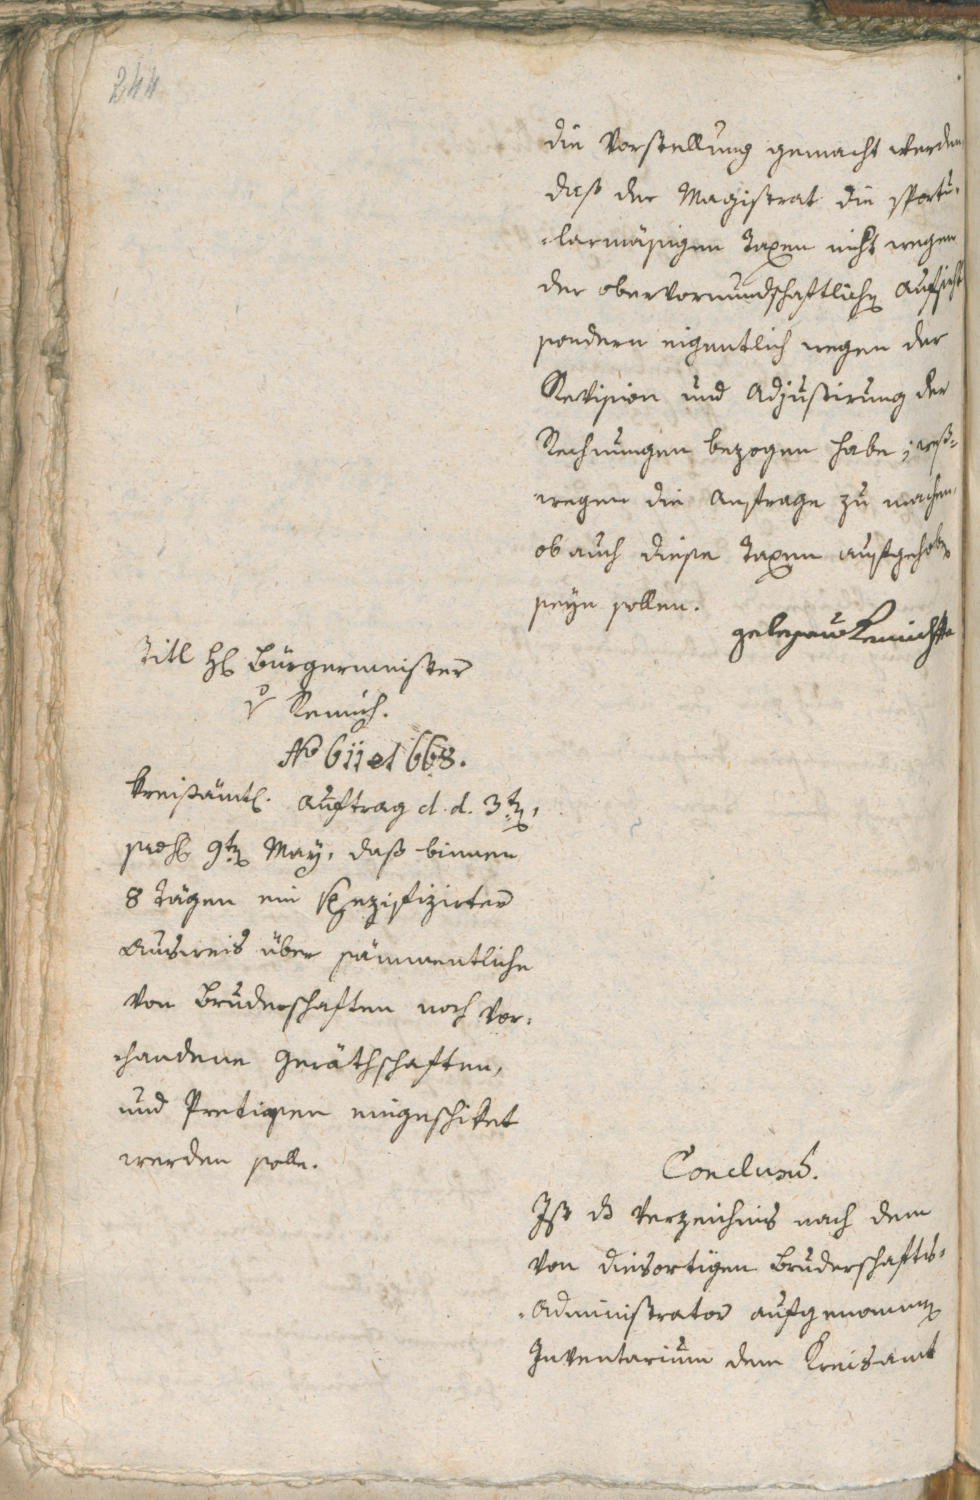 244
die Vorstellung gemacht werden
daß der Magistrat die sportu-
-larmäsigen Taxen nicht wegen
der obervormundschaftlichen Aufsicht
sondern eigentlich wegen der
Revision und Adjustirung der
Rechnungen bezogen habe; weß-
wegen die Anfrage zu machen,
ob auch diese Taxen aufgehoben
seyn sollen.
gelesen
Titl H. Bürgermeister
v
No 611 et 668.
kreisämtl. Auftrag d. d. 3ten,
9ten May, daß binnen
8 Tägen ein spezifizirter
Ausweis über sämmentliche
von Bruderschaften noch vor-
-handene Geräthschaften,
und Pretiosen eingeschiket
werden solle.
Conclusum.
Ist das Verzeichnis nach dem
von diesortigen Bruderschafts-
-Administrator aufgenommenen
Inventarium dem Kreisamt